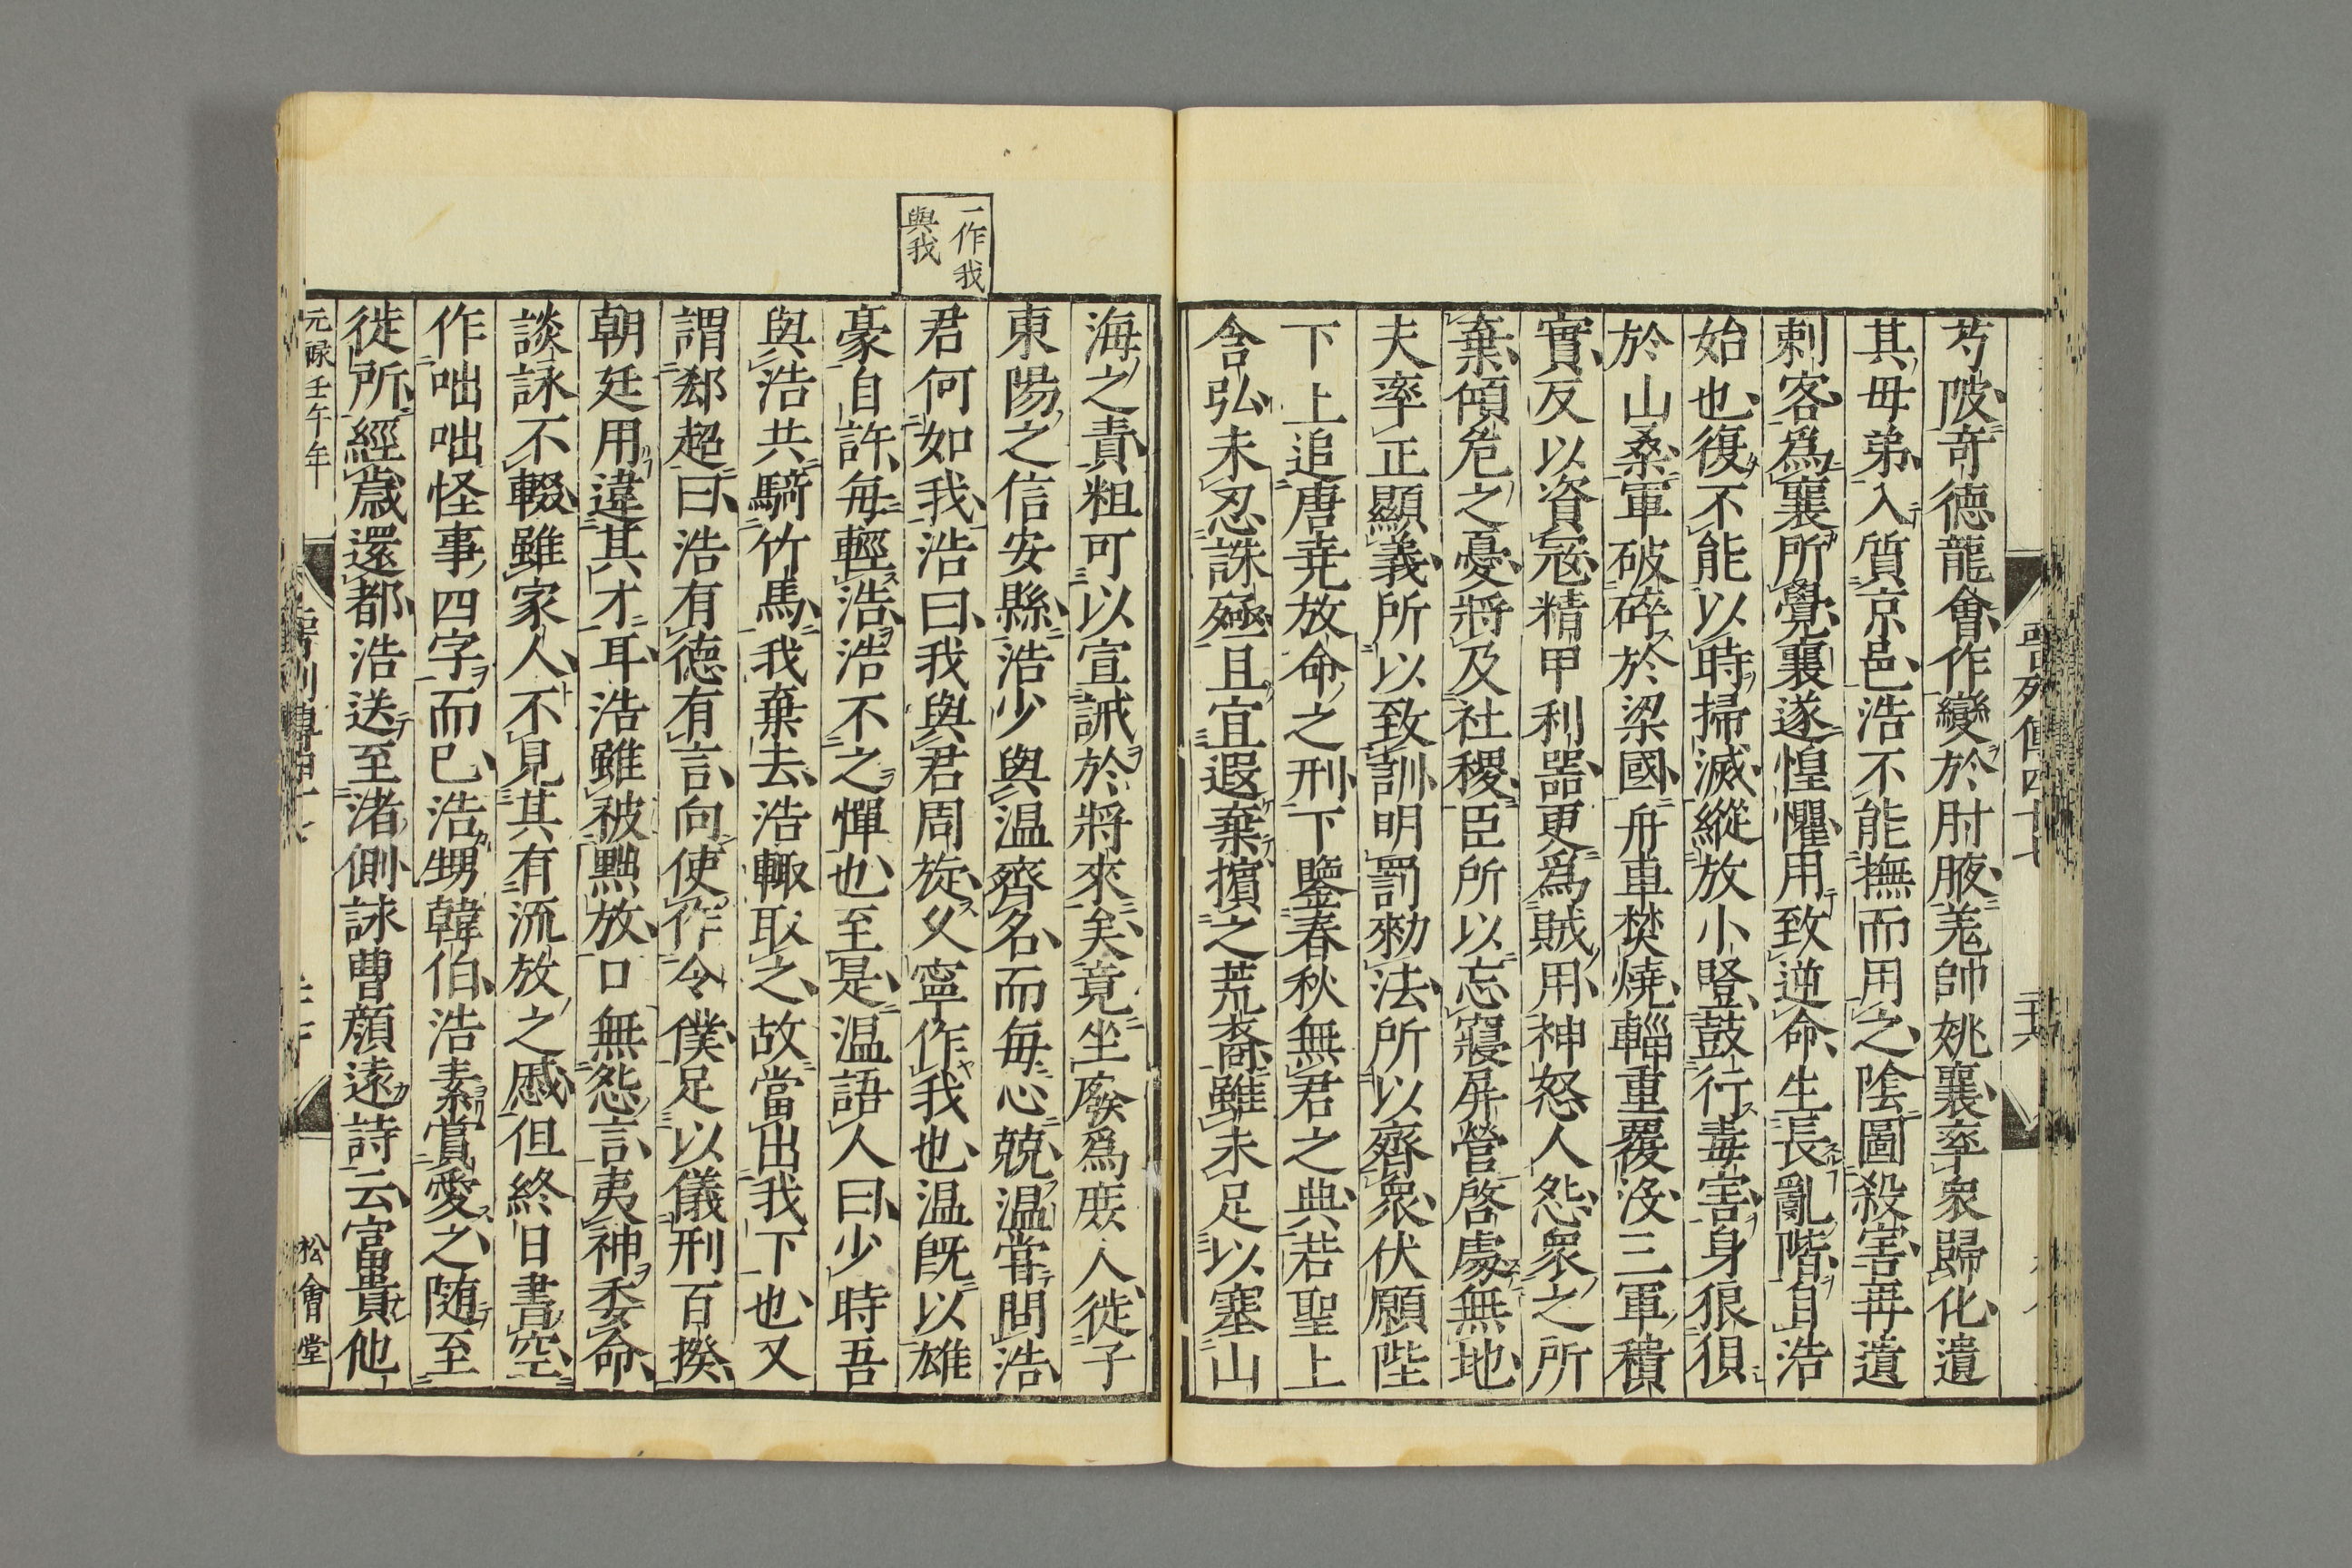 芍陂奇德龍會作變於肘腋羗帥姚襄率衆歸化遣
其母弟入質京邑浩不能撫而用之隂圖殺害再遣
刺客爲襄所覺襄遂惶懼用致逆命生長亂階自浩
始也復不能以時掃滅縱放小竪鼓行毒害身狼狽
於山桑軍破碎於梁國舟車焚燒輜重覆没三軍積
實反以資宼精甲利噐更爲賊用神怒人怨衆之所
棄傾危之憂將及社稷臣所以忘寢屏營啓處無地
夫率正顯義所以致訓明罰勑法所以齊衆伏願陛
下上追唐尭放命之刑下鑒春秋無君之典若聖上
含弘未忍誅殛且宜遐棄擯之荒裔雖未足以塞山
海之責粗可以宣誡於將來矣竟坐廢爲庻人徙于
東陽之信安縣浩少與温齊名而每心兢温甞問浩
君何如我浩曰我與君周旋乆寧作我也温既以雄
豪自許毎輕浩浩不之憚也至是温語人曰少時吾
與浩共騎竹馬我棄去浩輙取之故當出我下也又
謂郄超曰浩有德有言向使作令僕足以儀刑百揆
朝廷用違其才耳浩雖被黜放口無怨言夷神委命
談詠不輟雖家人不見其有流放之慼但終日書空
作咄咄怪事四字而已浩甥韓伯浩素賞愛之随至
徙所經歲還都浩送至渚側詠曹顔遠詩云富貴他
一作我
與我
元禄壬午年
松會堂